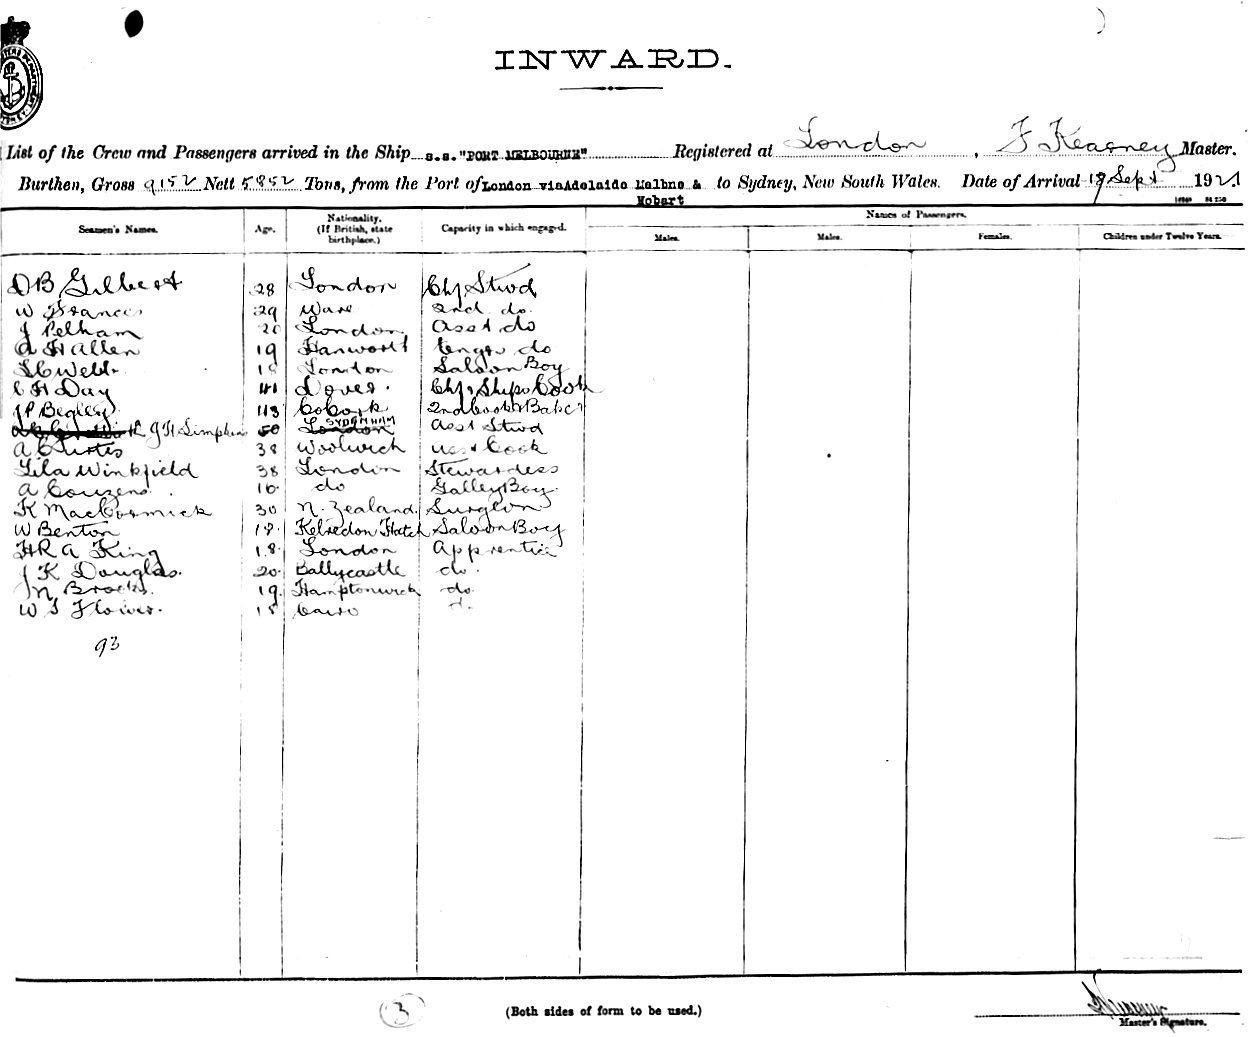 INWARD.
List of the Crew and Passengers arrived in the Ship s.s. "PORT MELBOURNE" Registered at London, F Kearney Master.
Burthen, Gross 9152 Nett 5852 Tons, from the Port of London via Adelaide Melbne & Hobart to Sydney, New South Wales. Date of Arrival Sept 192
Seamen's Names. Age. Nationality. (If British, state birthplace.) Capacity in which engaged. Names of Passengers.
Males. Males. Females. Children under Twelve Years.
D B Gilbert 28 London Chf Stwd
W Frances 29 Ware 2nd do
J Pelham 20 London Asst do
A H Allen 19 Hanworth do
Webb London Saloon Boy
C H Day 41 Dover. Chf & Ships Cook
J P Begley 43 Co Cork 2nd Cook & Baker
J H Simpkin 50 SYDENHAM Asst Stwd
A Curtis 38 Woolwich Asst Cook
Lila Winkfield 38 London Stewardess
A Couzens. 16 do Galley Boy
K MacCormick 30 N. Zealand. Surgeon
W Benton 18 Kelvedon Hatch Saloon Boy
H R A King 18 London Apprentice
J K Douglas. 20 Ballycastle do.
J N Brooks. 19 Hamptonwick do.
W J Flower. 18 Cairo
93
3
(Both sides of form to be used.)
Master's Signature.